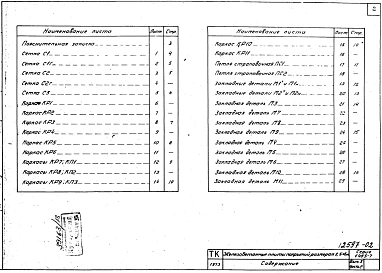 2
Наименование листа Лист Стр.
Пояснительная записка 3
Сетка С1 1 4
Сетка С1т 2 5
Сетка С2 3 5
Сетка С2т 4 —
Сетка С3 5 6
Каркас КР1 6 —
Каркас КР2 7 —
Каркас КР3 8 7
Каркас КР4 9 —
Каркас КР5 10 8
Каркас КР6 11 —
Каркасы КР7; КП1 12 9
Каркасы КР8; КП2 13 —
Каркасы КР9; КП3 14 10
Наименование листа Лист Стр.
Каркас КР10 15 10
Каркас КР11 16 —
Петля строповочная ПС1 17 11
Петля строповочная ПС2 18 —
Закладные детали 19 12
Закладные детали 20 13
Закладная деталь М3 21 14
Закладная деталь М7 22 —
Закладная деталь М8 23 —
Закладная деталь М9 24 15
Закладная деталь М4 25 —
Закладная деталь М5 26 —
Закладная деталь М6 27 —
Закладная деталь М10 28 16
Закладная деталь М11 29 —
12577-02
ТК Железобетонные плиты покрытий размером Серия
1973 Содержание